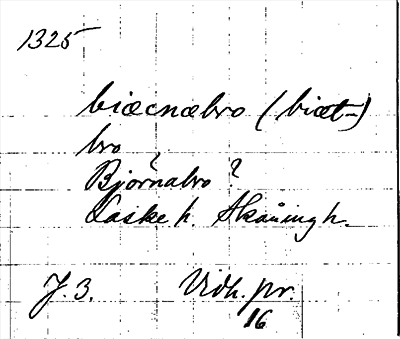 1325
biæcnæbro (biæt-)
bro
Björnabro?
Laske h. Skåningh.
J. 3. Vidh. pr.
16